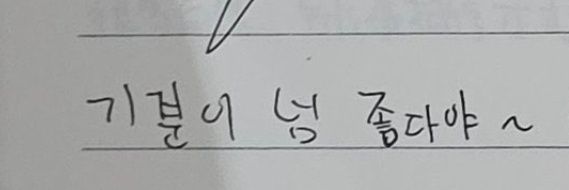 기분이 넘 좋다야~